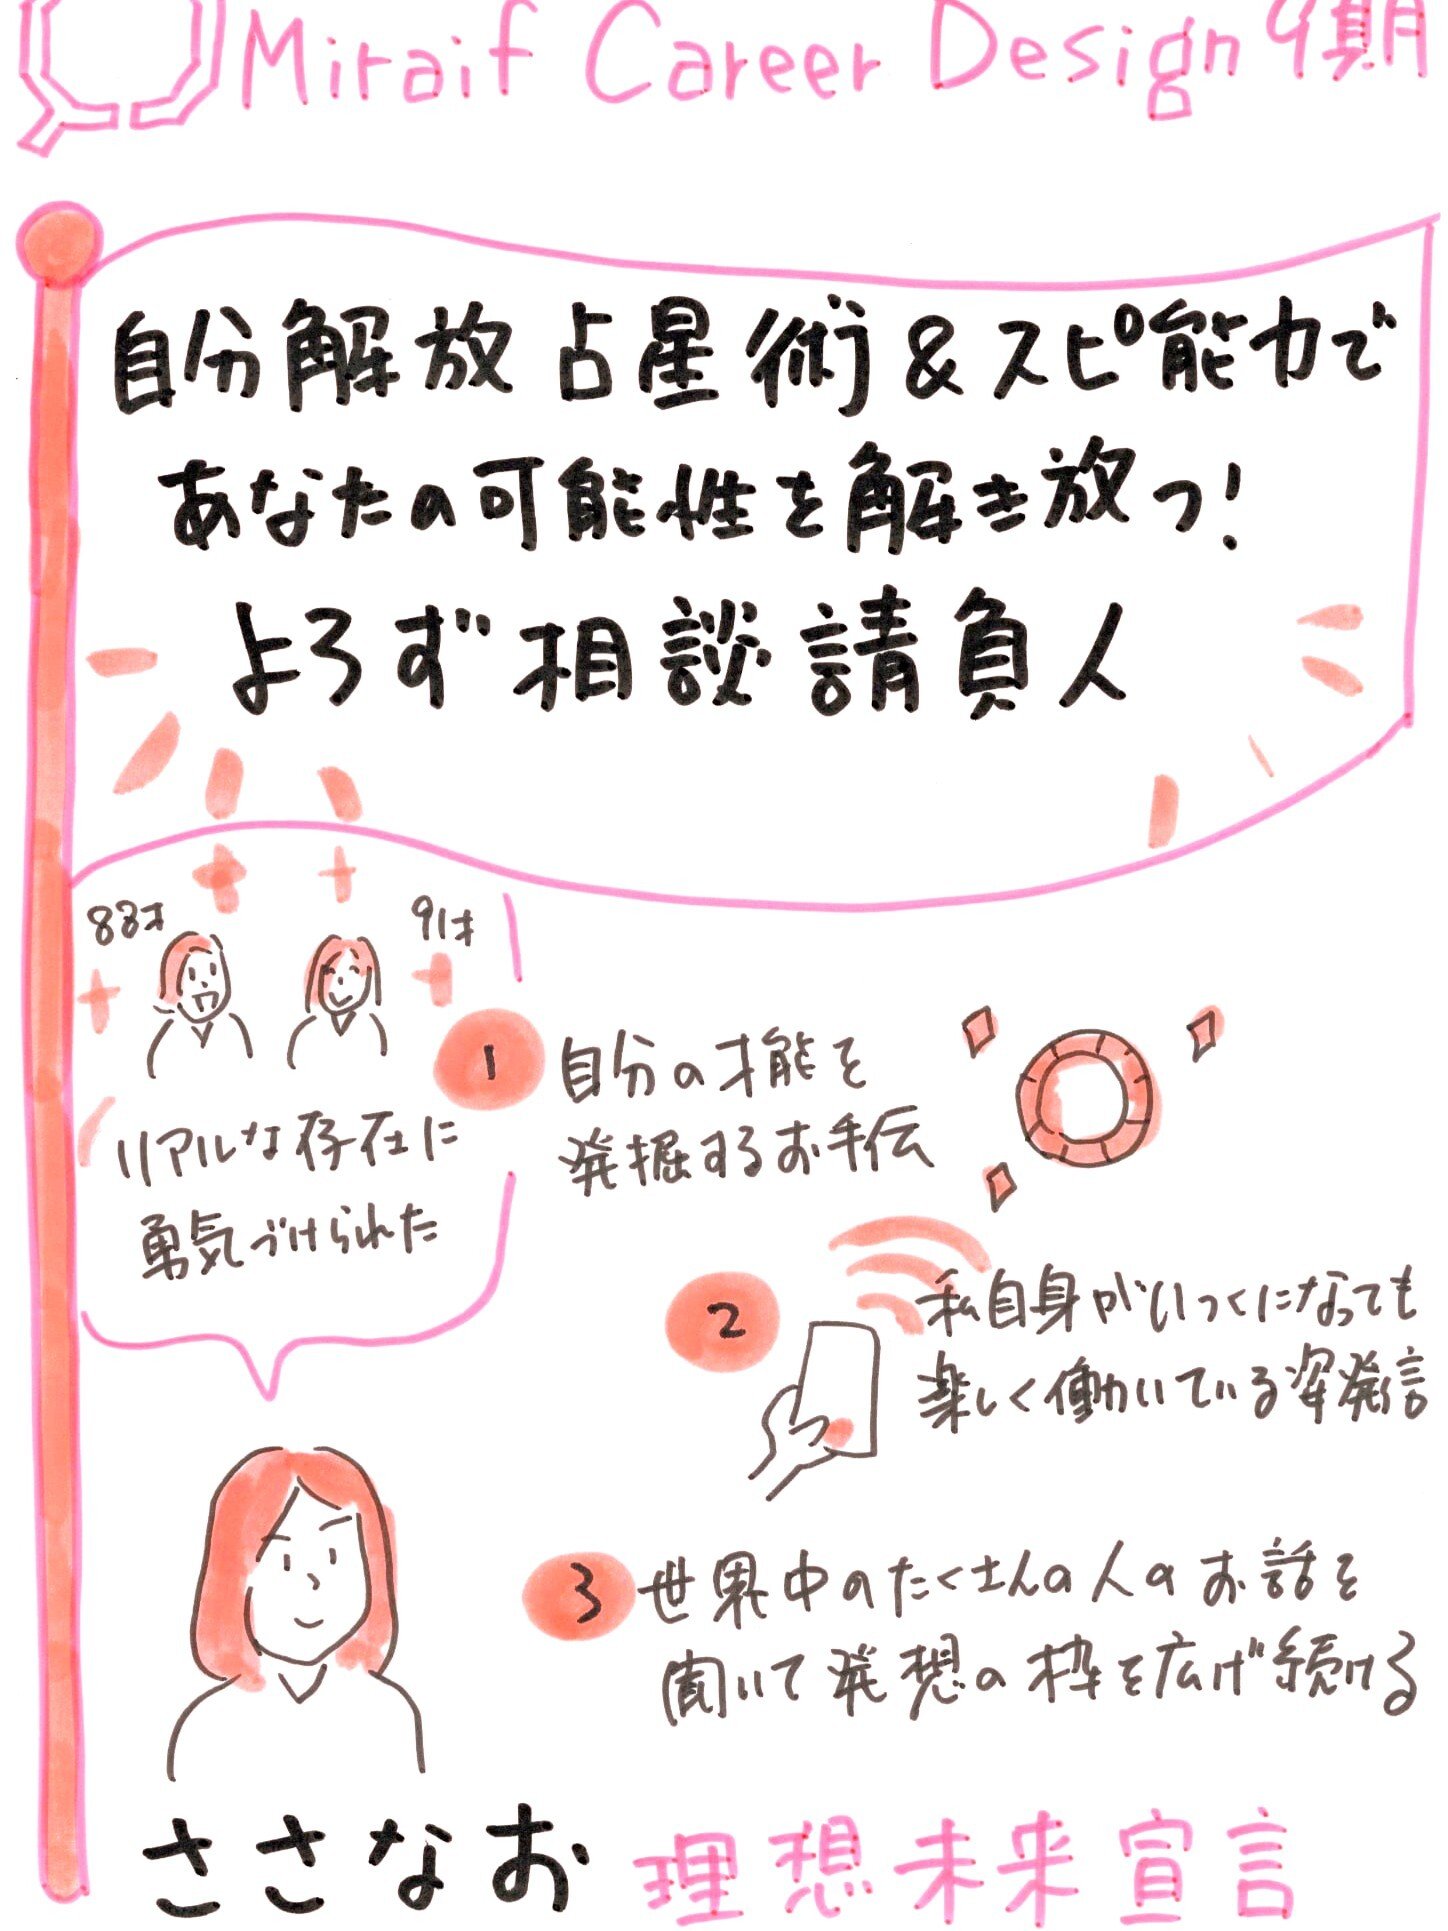 Miraif Career Design 9期
自分解放占星術&スピ能力で
あなたの可能性を解き放つ!
よろず相談請負人
88才
91才
リアルな存在に
勇気づけられた
1
自分の才能を
発掘するお手伝
2
私自身がいくつになっても
楽しく働いている姿発信
3
世界中のたくさんの人のお話を
聞いて発想の枠を広げ続ける
ささなお 理想未来宣言